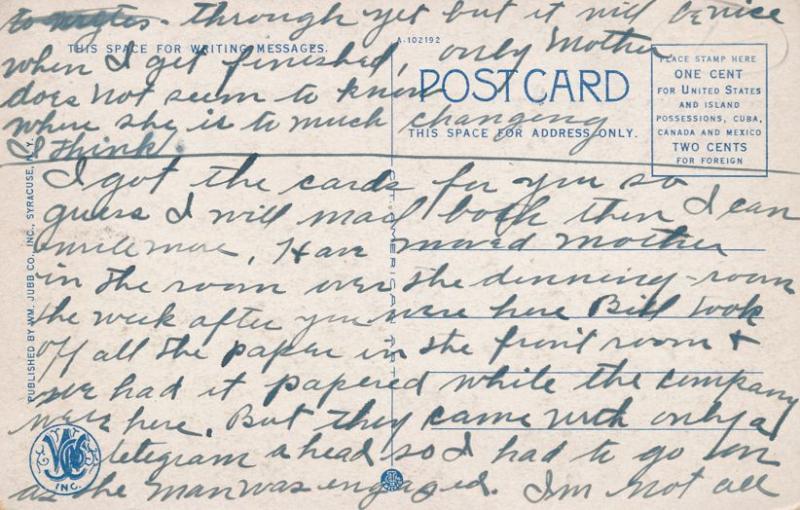 to nights. through yet but it will be nice
THIS SPACE FOR WRITING MESSAGES.
A-102192
when I get finished, only Mother
does not seem to know
where she is to much changing
I think.
POST CARD
THIS SPACE FOR ADDRESS ONLY.
PLACE STAMP HERE
ONE CENT
FOR UNITED STATES
AND ISLAND
POSSESSIONS, CUBA,
CANADA AND MEXICO
TWO CENTS
FOR FOREIGN
I got the cards for you so
guess I will mail both then I can
write more, Have moved Mother
in the room over the dinning-room
the week after you were here Bill took
off all the paper in the front room &
we had it papered while the company
were here. But they came with only a
telegram ahead so I had to go on
as the man was engaged. I'm not all
PUBLISHED BY WM. JUBB CO., INC., SYRACUSE, N. Y.
C.T. AMERICAN ART
WJCo
INC.